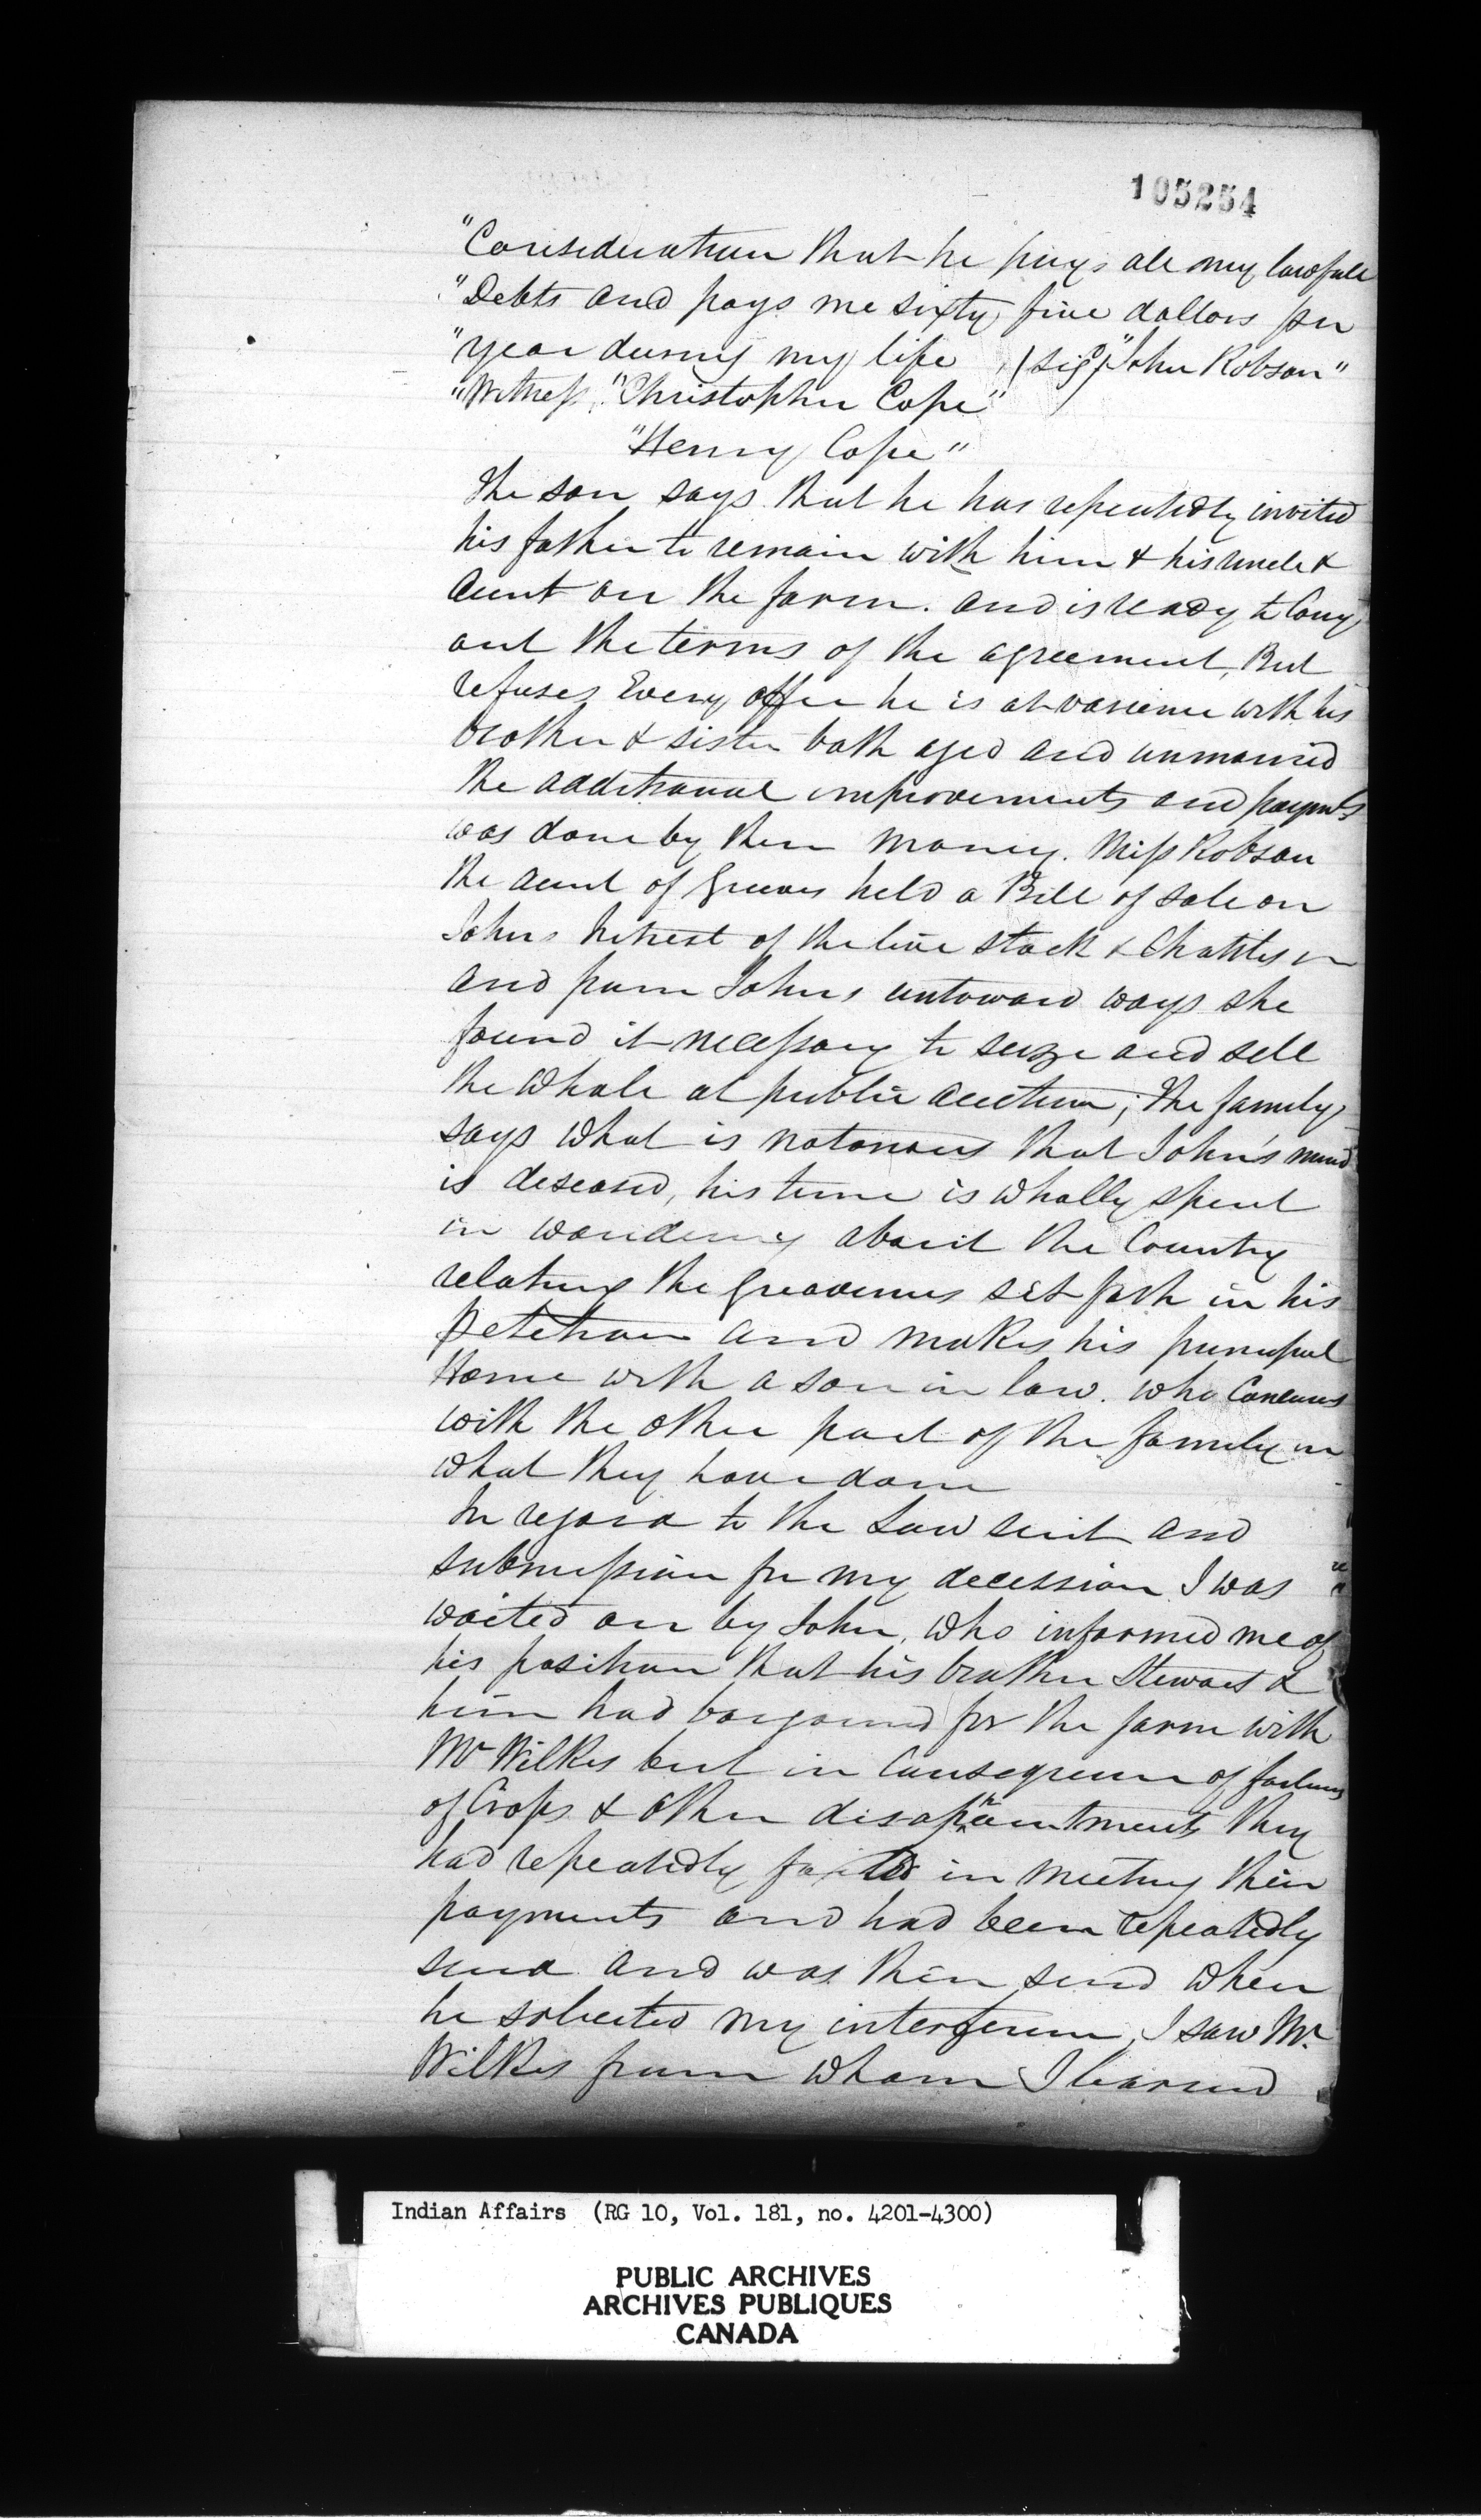 105254
"Consideration that he pays all my lawfull
"Debts and pays me sixty five dollars per
"year during my life (sigd) "John Robson"
"Witness, "Christopher Cope"
"Henry Cope"
The son says that he has repeatedly invited
his father to remain with him & his uncle &
Aunt on the farm. and is ready to Carry
out the terms of the agreement, But
refuses Every offer he is at varience with his
brother & sister both aged and unmarried
the additional improvements and payments
was done by their money. Miss Robson
the aunt of held a Bill of Sale on
Johns Intrest of the live stock & Chattles
and from Johns untoward ways she
found it necessary to seize and sell
the Whole at public Auction; the family
says What is notorious that John's mind
is deseased, his time is Wholly spent
in wandering about the Country
relating the Greavences set forth in his
petition and makes his principal
Home with a son in law. who Concurs
with the other part of the family in
What they have done
In regard to the Law suit and
submission for my decession I was
waited on by John, Who informed me of
his position that his brother Stewart &
him had bargained for the farm with
Mr Wilkes but in Consequence of failures
of Crops & other disappointments they
had repeatedly failed in meeting their
payments and had been repeatedly
sued and was then sued When
he solicited my interference, I saw Mr.
Wilkes from Whom I learned
Indian Affairs (RG 10, Vol. 181, no. 4201-4300)
PUBLIC ARCHIVES
ARCHIVES PUBLIQUES
CANADA